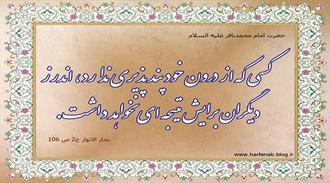 حضرت امام محمدباقر علیه السلام
کسی که از درون خود پند پذیری ندارد، اندرز
دیگران برایش نتیجه ای نخواهد داشت.
بحار الانوار ج2 ص 106
www.harfenab.blog.ir